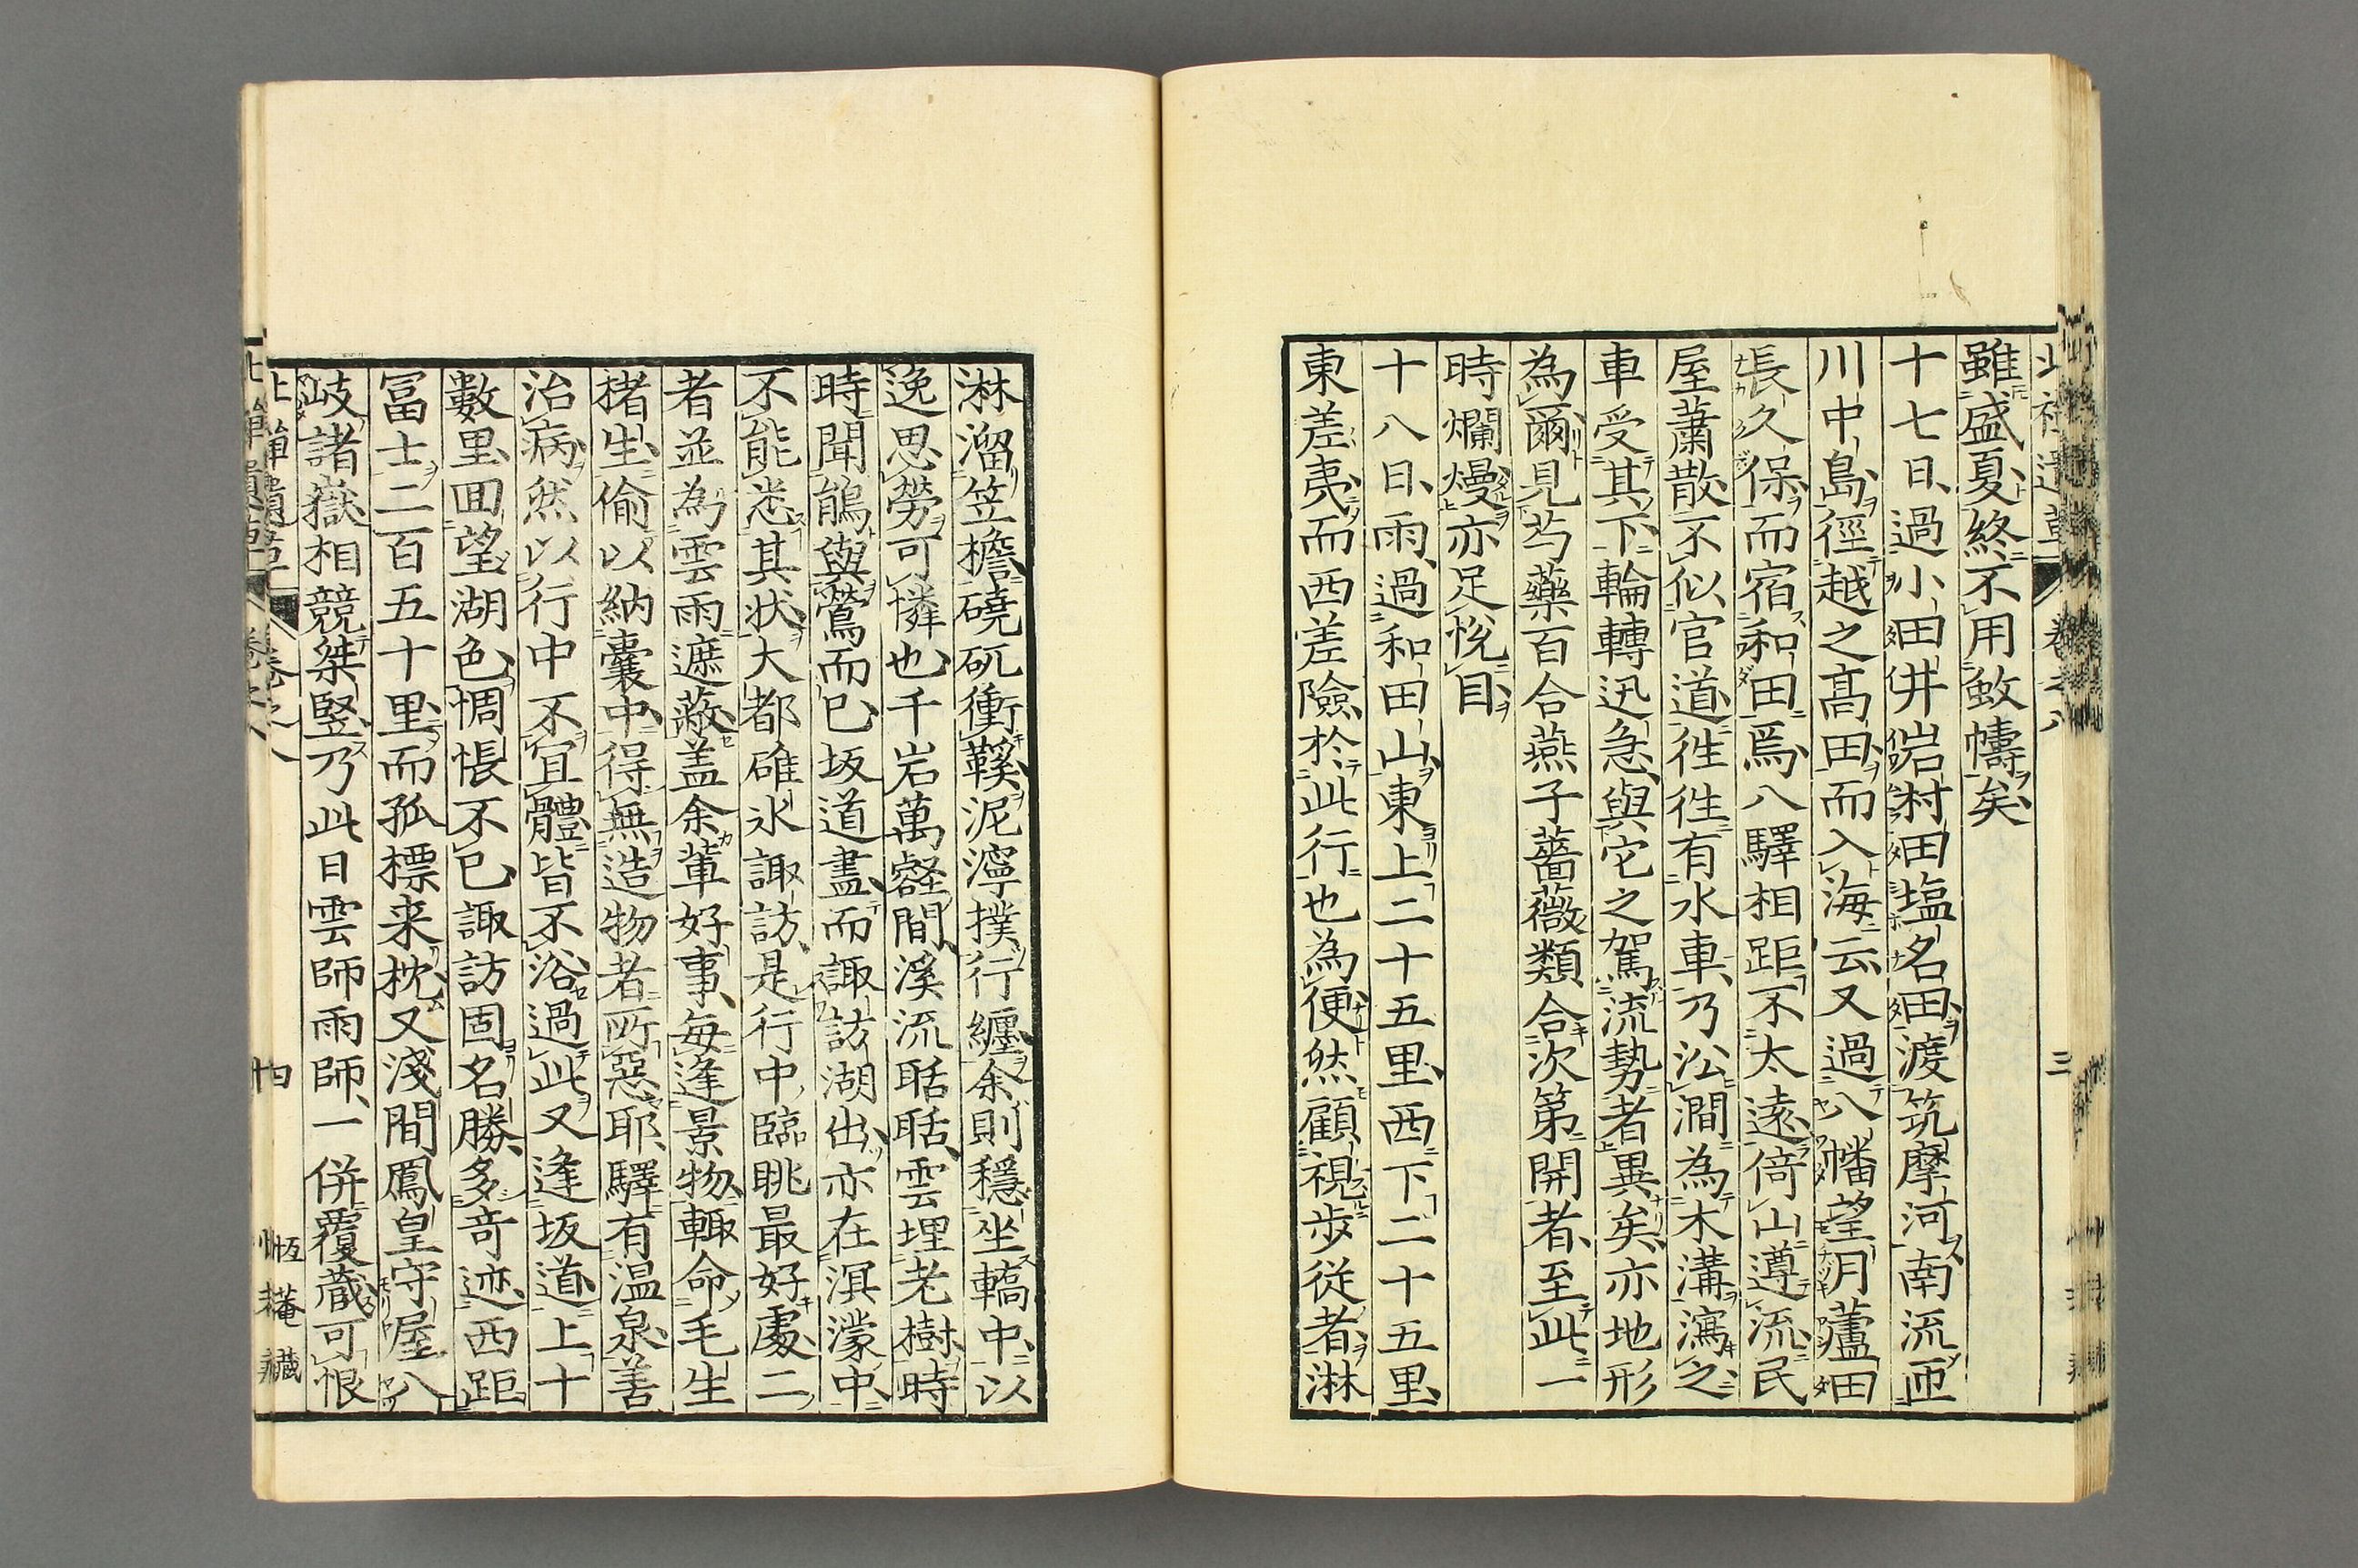 雖盛夏終不用蚊幮矣
十七日過小田井岩村田塩名田渡筑摩河南流匝
川中島徑越之髙田而入海云又過八幡望月蘆田
長久保而宿和田焉八驛相距不太遠倚山遵流民
屋蕭散不似官道徃徃有水車乃㳂澗為木溝瀉之
車受其下輪轉迅急與它之駕流勢者異矣亦地形
為爾見芍藥百合燕子薔薇類合次第開者至此一
時爛熳亦足悅目
十八日雨過和田山東上二十五里西下二十五里
東差夷而西差險於此行也為便然顧視步從者淋
淋溜笠擔磽矹衝鞵泥濘撲行纏余則穩坐轎中以
逸思勞可憐也千岩萬壑間溪流聒聒雲埋老樹時
時聞鵑與鶯而已坂道盡而諏訪湖出亦在溟濛中
不能悉其狀大都碓氷諏訪是行中臨眺最好處二
者並為雲雨遮蔽盖余軰好事每逢景物輙命毛生
楮生偷以納囊中得無造物者所惡耶驛有温泉善
治病然以行中不冝體皆不浴過此又逢坂道上十
數里回望湖色惆悵不已諏訪固名勝多竒迹西距
冨士二百五十里而孤標来枕又淺間鳳皇守屋八
岐諸嶽相競桀竪乃此日雲師雨師一併覆藏可恨
北禪遺草
卷之八
四
恆菴藏